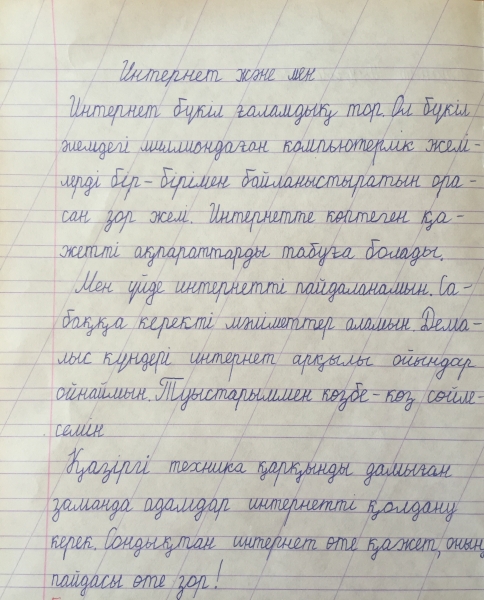 Интернет және мен
Интернет бүкіл ғаламдық тор. Ол бүкіл
әлемдегі миллиондаған компьютерлік желі-
лерді бір-бірімен байланыстыратын ора-
сан зор желі. Интернетте көптеген қа-
жетті ақпараттарды табуға болады.
Мен үйде интернетті пайдаланамын. Са-
баққа керекті мәліметтер аламын. Дема-
лыс күндері интернет арқылы ойындар
ойнаймын. Туыстарыммен көзбе-көз сөйле-
семін
Қазіргі техника қарқынды дамыған
заманда адамдар интернетті қолдану
керек. Сондықтан интернет өте қажет, оның
пайдасы өте зор!